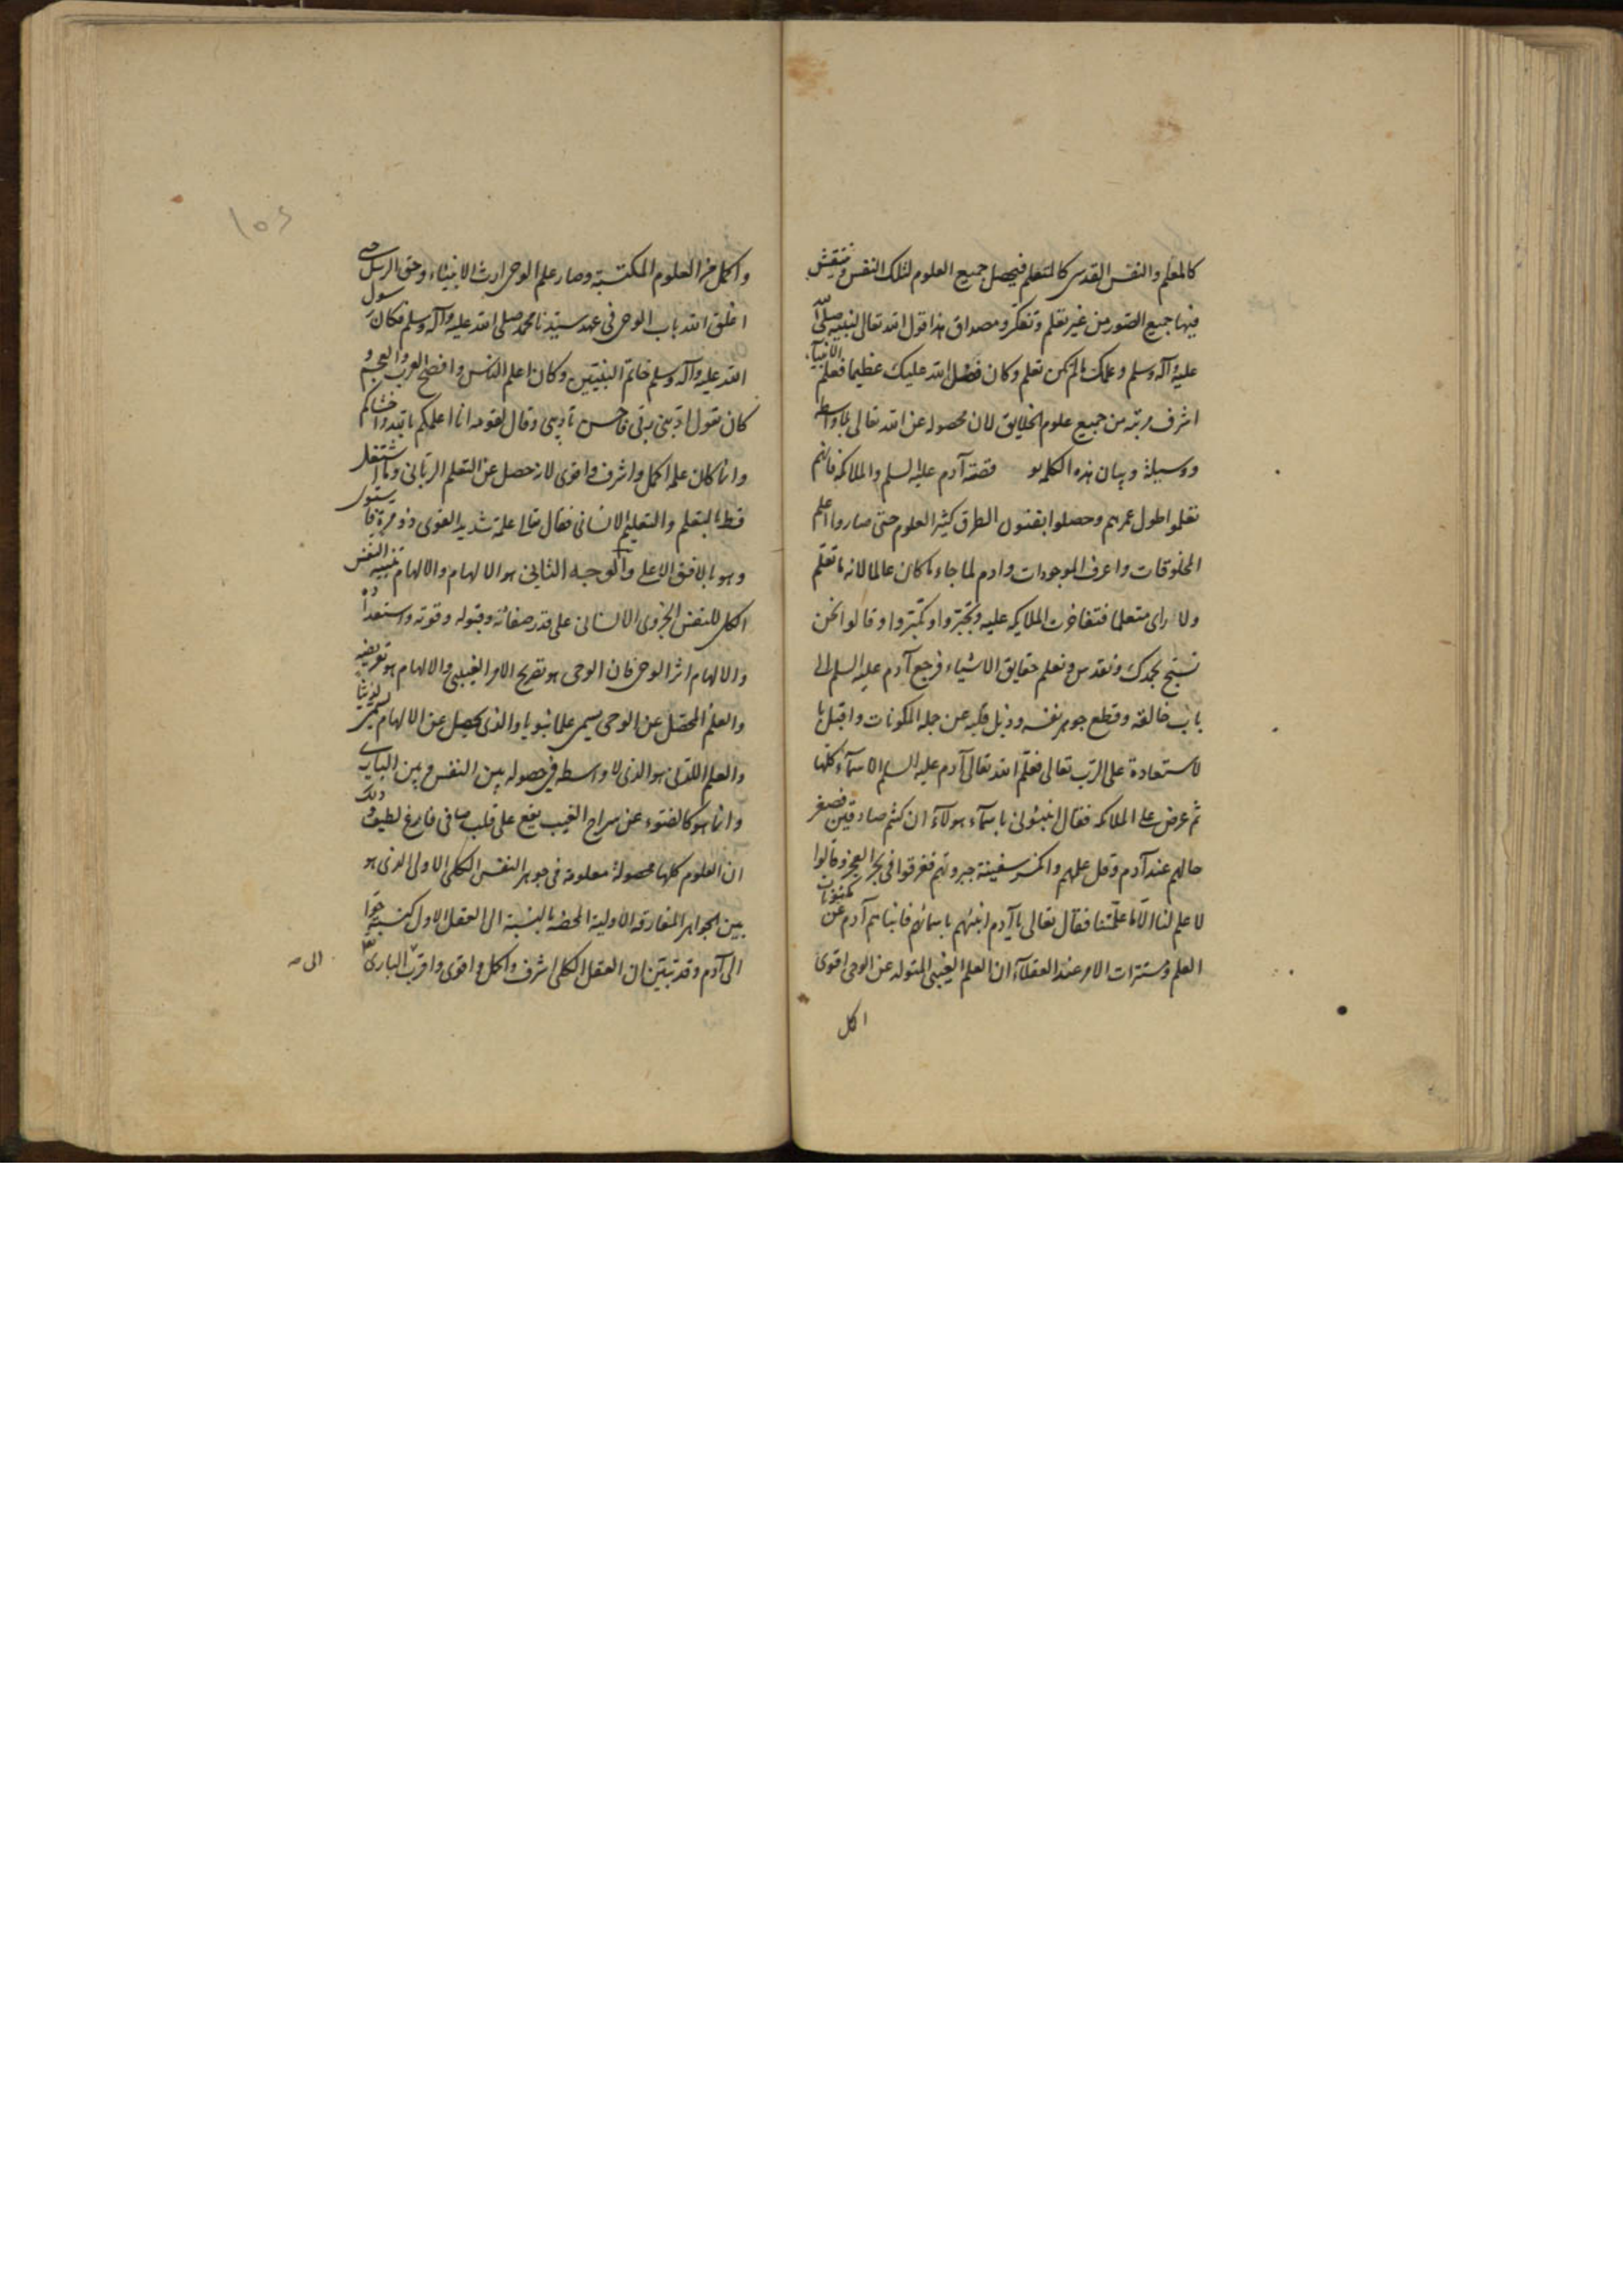 كالمعلم والنفس القدسى كالمتعلم فيحصل جميع العلوم لتلك النفس وينتقش
فيها جميع الصور من غير تعلم وتفكر ومصداق هذا قول الله تعالى لنبيه صلى الله
عليه وآله وسلم وعلمك مالم تكن تعلم وكان فضل الله عليك عظيما فعلم الانبياء
اشرف مرتبة من جميع علوم الخلايق لان محصوله عن الله تعالى بلا واسطة
ووسيلة وبيان هذه الكلمه يو قصة آدم عليه السلم والملائكة فانهم
تعلموا طول عمرهم وحصلوا بفنون الطرق كثير العلوم حتى صاروا اعلم
المخلوقات واعرف الموجودات وادم لما جاء ما كان عالما لانه ما تعلم
ولا راى متعلما فتفاخرت الملايكه عليه وتجبروا وتكبروا وقالوا نحن
نسبح بحمدك ونقدس ونعلم حقايق الاشياء فرجع آدم عليه السلم الى
باب خالقه وقطع جوهر نفسه وذبل قلبه عن جملة المكونات واقبل با
لاستعادة على الرب تعالى فعلم الله تعالى آدم عليه السلم الاسمآء كلها
ثم عرض على الملائكه فقال انبئونى باسمآء هولآء ان كنتم صادقين فصغر
حالهم عند آدم وقل علمهم وانكسر سفينة جبروتهم فغرقوا فى بحر العجز وقالوا
لا علم لنا الا ما علمتنا فقال تعالى يا آدم انبئهم باسمائهم فانباهم آدم عن مكنونات
العلم ومستترات الامر عند العقلآء ان العلم الغيبى المتولد عن الوحى اقوى
اكمل
١٥٤
واكمل من العلوم المكتسبة وصار علم الوحى ارث الانبياء وحق الرسل حتى
اغلق الله باب الوحى فى عهد سيدنا محمد صلى الله عليه وآله وسلم فكان رسول
الله عليه وآله وسلم خاتم النبيين وكان اعلم الناس وافصح العرب والعجم و
كان يقول ادبنى ربى فاحسن تأديبى وقال لقومه انا اعلمكم بالله واخشاكم
وانما كان علمه اكمل واشرف واقوى لانه حصل عن التعلم الربانى وما اشتغل
قط بالتعلم والتعليم الانسانى فقال تعالى علمه شديد القوى ذو مرة فاستوى
وهو بالافق الاعلى والوجه الثانى هو الالهام والالهام تنبيه النفس
الكلى للنفس الجزوى الانسانى على قدر صفائه وقبوله وقوته واستعداده
والالهام اثر الوحى فان الوحى هو تصريح الامر الغيبى والالهام هو تعريضه
والعلم المحصل عن الوحى يسمى علما نبويا والذى يحصل عن الالهام يسمى لدنيا
والعلم اللدنى هو الذى لا واسطه فى حصوله بين النفس وبين البارى
وانما هو كالضوء عن سراج الغيب يقع على قلب صافى فارغ لطيف وذلك
ان العلوم كلها محصولة معلومة فى جوهر النفس الكلى الاولى الذى هو
بين الجواهر المفارقة الاولية المحضة بالنسبة الى العقل الاول كنسبة حوا
الى آدم وقد تبين ان العقل الكلى اشرف واكمل واقوى واقرب البارى
الى صـ